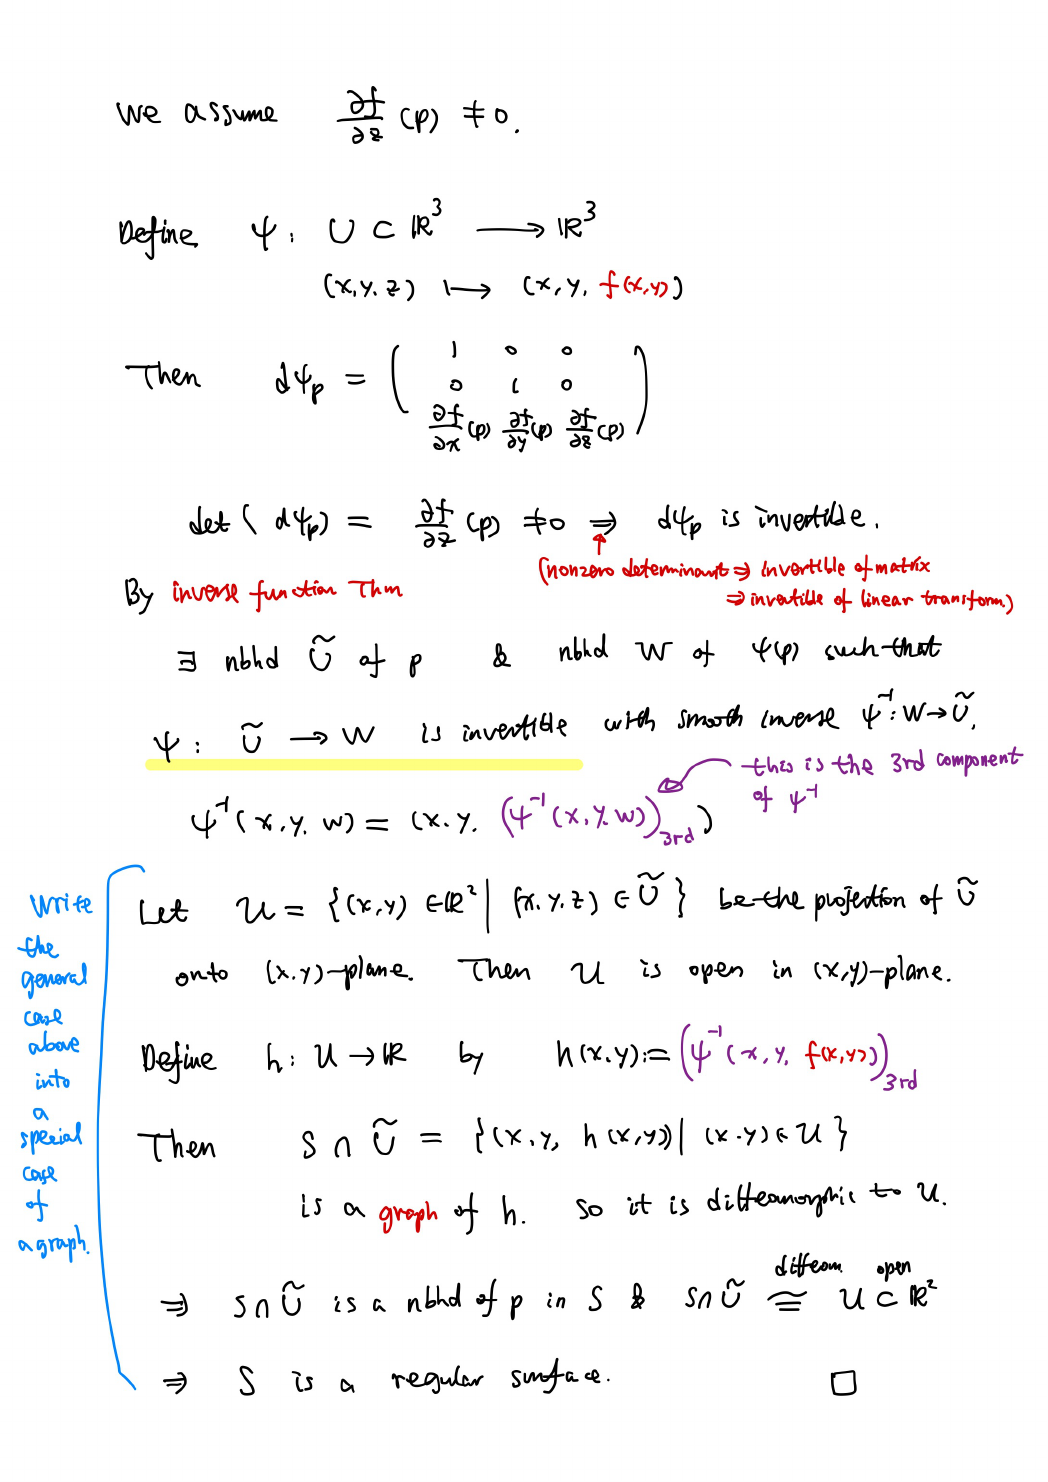 We assume ∂f/∂z (p) ≠ 0.
Define ψ: U ⊂ ℝ³ ⟶ ℝ³
(x,y,z) ⟼ (x,y, f(x,y))
Then dψₚ = ( 1 0 0
0 1 0
∂f/∂x (p) ∂f/∂y (p) ∂f/∂z (p) )
det( dψₚ) = ∂f/∂z (p) ≠0 ⇒ dψₚ is invertible.
(nonzero determinant ⇒ invertible of matrix
⇒ invertible of linear transform)
By inverse function Thm
∃ nbhd Ũ of p & nbhd W of ψ(p) such that
ψ: Ũ ⟶ W is invertible with smooth inverse ψ⁻¹: W→Ũ.
this is the 3rd component
of ψ⁻¹
ψ⁻¹(x,y,w) = (x,y, (ψ⁻¹(x,y,w))3rd )
Write
the
general
case
above
into
a
special
case
of
a graph.
Let 𝒰 = {(x,y) ∈ℝ² | (x,y,z) ∈ Ũ } be the projection of Ũ
onto (x,y)-plane. Then 𝒰 is open in (x,y)-plane.
Define h: 𝒰 → ℝ by h(x,y):= (ψ⁻¹(x,y, f(x,y)))3rd
Then S ∩ Ũ = {(x,y, h(x,y)) | (x,y) ∈ 𝒰 }
is a graph of h. So it is diffeomorphic to 𝒰.
⇒ S∩Ũ is a nbhd of p in S & S∩Ũ ≅ 𝒰 ⊂ ℝ²
diffeom. open
⇒ S is a regular surface. □